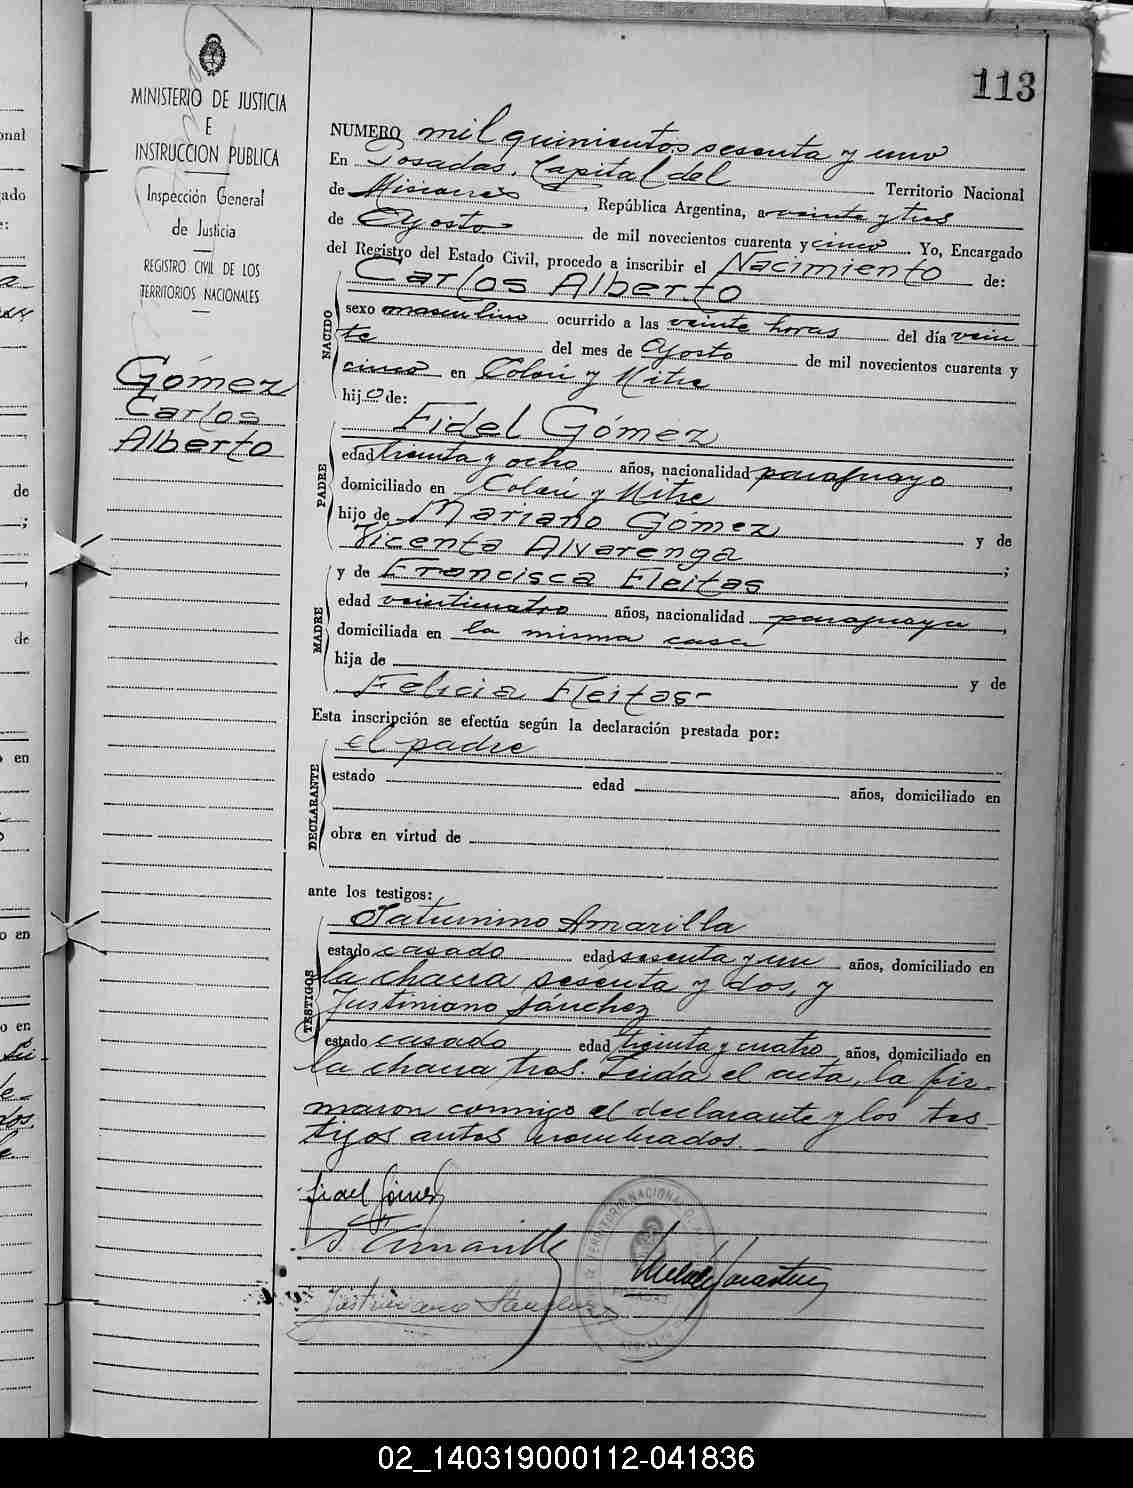 113
MINISTERIO DE JUSTICIA
E
INSTRUCCION PUBLICA
Inspección General
de Justicia
REGISTRO CIVIL DE LOS
TERRITORIOS NACIONALES
Gómez
Carlos
Alberto
NUMERO mil quinientos sesenta y uno
En Posadas, Capital del Territorio Nacional
de Misiones, República Argentina, a veinte y tres
de Agosto de mil novecientos cuarenta y cinco. Yo, Encargado
del Registro del Estado Civil, procedo a inscribir el Nacimiento de:
Carlos Alberto
NACIDO
sexo masculino ocurrido a las veinte horas del día vein
te del mes de Agosto de mil novecientos cuarenta y
cinco en Colón y Mitre
hijo de:
Fidel Gómez
PADRE
edad treinta y ocho años, nacionalidad paraguayo,
domiciliado en Colón y Mitre
hijo de Mariano Gómez y de
Vicenta Alvarenga;
y de Francisca Fleitas
MADRE
edad veinticuatro años, nacionalidad paraguaya,
domiciliada en la misma casa
hija de y de
Felicia Fleitas-
Esta inscripción se efectúa según la declaración prestada por:
el padre
DECLARANTE
estado edad años, domiciliado en
obra en virtud de
ante los testigos:
Saturnino Amarilla
TESTIGOS
estado casado edad sesenta y un años, domiciliado en
la chacra sesenta y dos, y
Justiniano Sánchez
estado casado edad treinta y cuatro años, domiciliado en
la chacra tres. Leida el acta, la fir-
maron conmigo el declarante y los tes-
tigos antes nombrados.-
Fidel Gómez
S Amarilla
Justiniano Sanchez
TERRITORIO NACIONAL
02_140319000112-041836